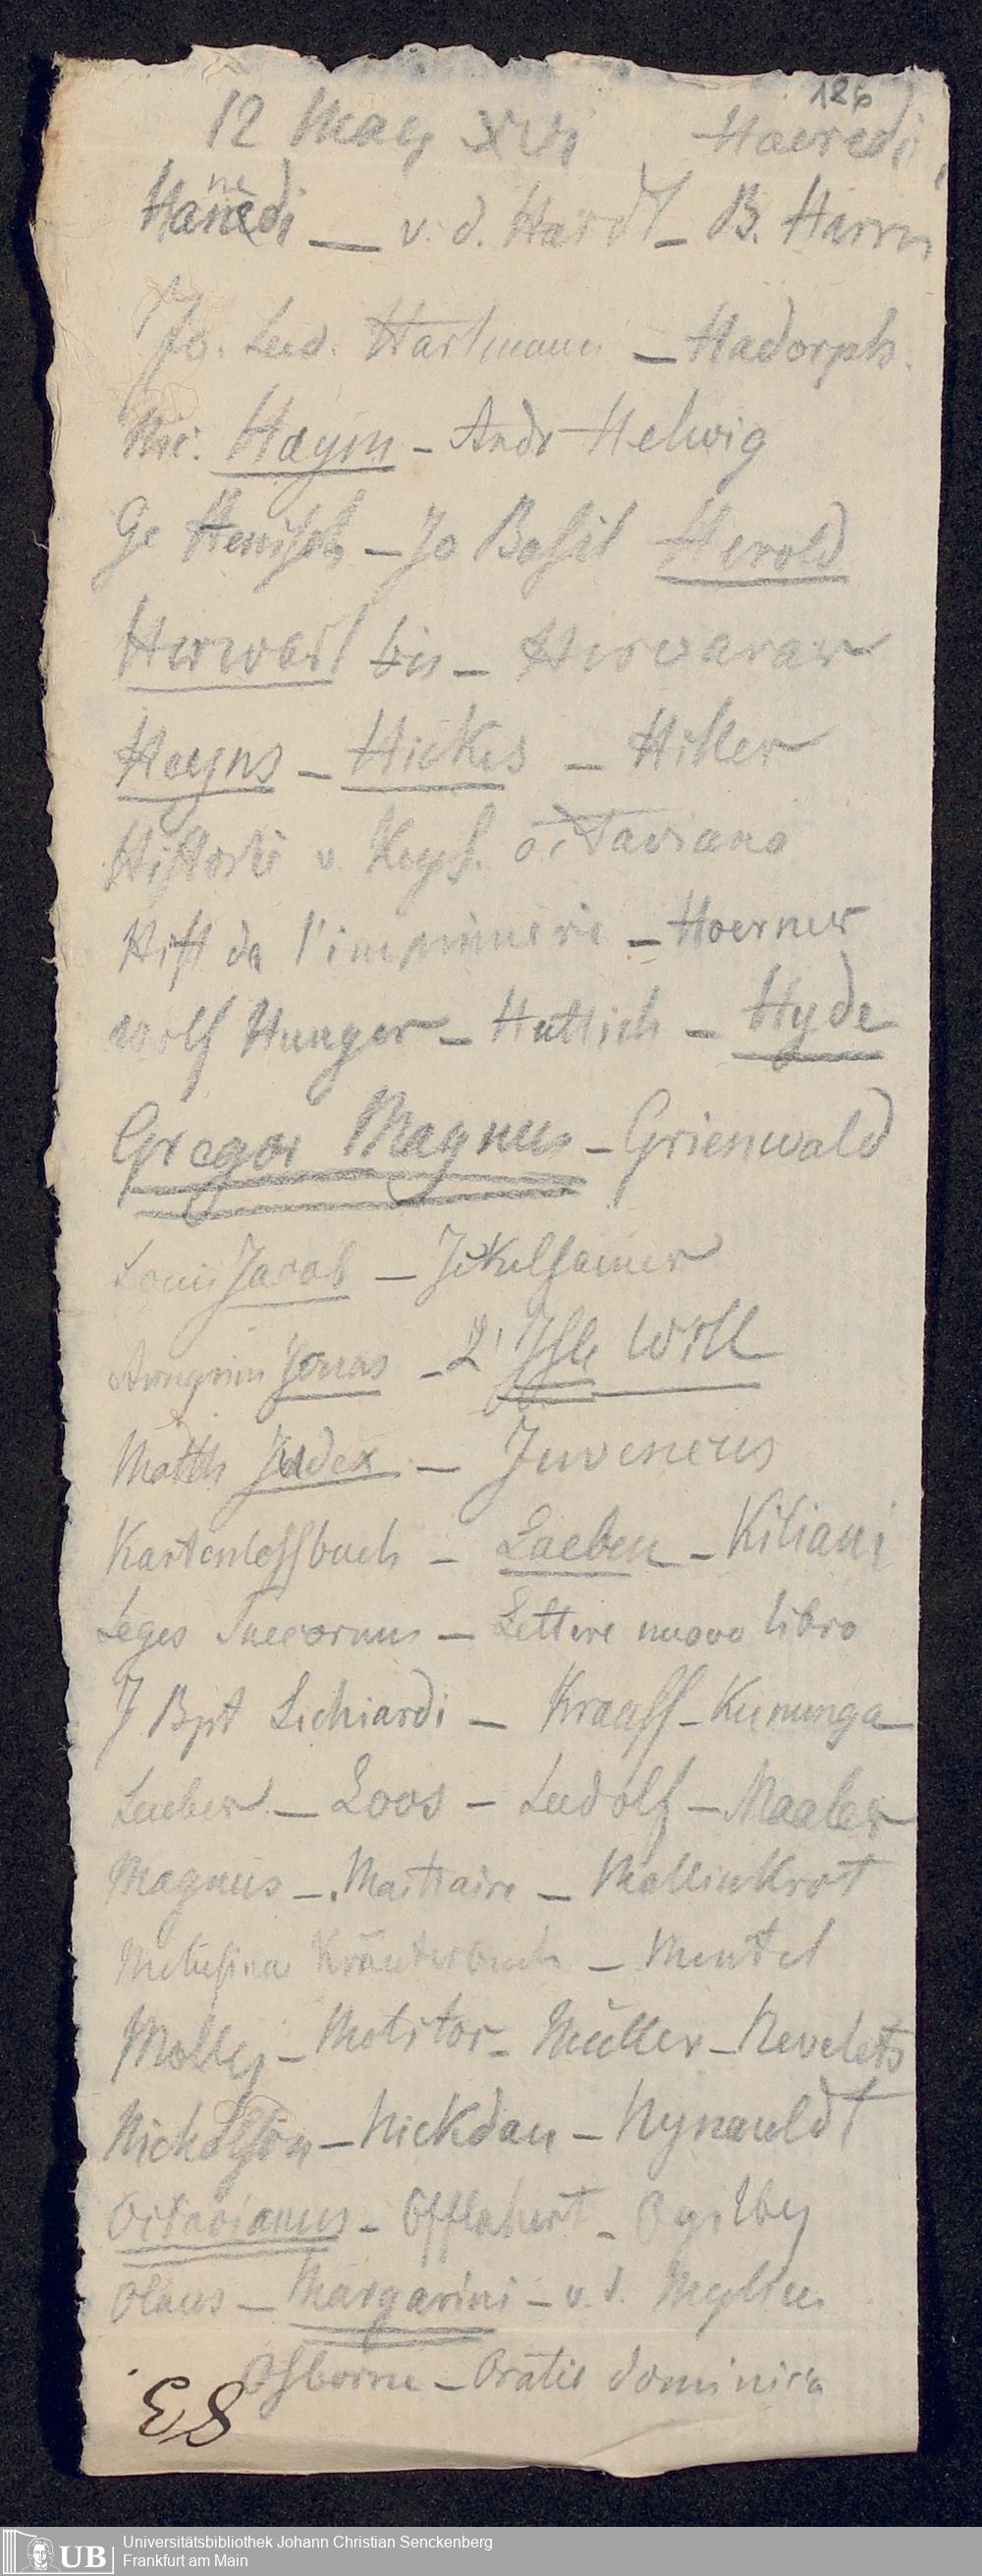 126
12 May xvi Haeredi,
Hanedi — v. d. Hardt – B. Harru
ne
Jo. Lud. Hartmann – Hadorph.
Nic. Haym – Andr Helwig
Ge Henisch – Jo Basil Herold
Herwart bis – Hervarar
Heyns – Hickes – Hiller
Historie v. Keys. octaviano
Hist de l'imprimerie – Hoerner
Wolf Hunger – Huttich – Hyde
Gregor Magnus – Grienwald
Louis Jacob – Jckelsamer
Arngrim Jonas – L' Isle Will
Matth Judex – Juvencus
Kartenlossbuch – Laeben – Kiliani
Leges Suecorum – Lettere nuovo libro
J Bpt Lichiardi – Kraaff – Kununga
Lueber – Loos – Ludolf – Maaler
Magnus – Maittaire – Mallinkrot
Melusina Kräuterbuch – Mentel
Molley – Molitor – Müller – Nevelets
Nicholson – Nickdan – Nynauldt
Octavianus – Offlahert – Ogilby
Olaus – Margarini – v. d. Mylius
Osborne – Oratio dominica
83
UB Universitätsbibliothek Johann Christian Senckenberg
Frankfurt am Main